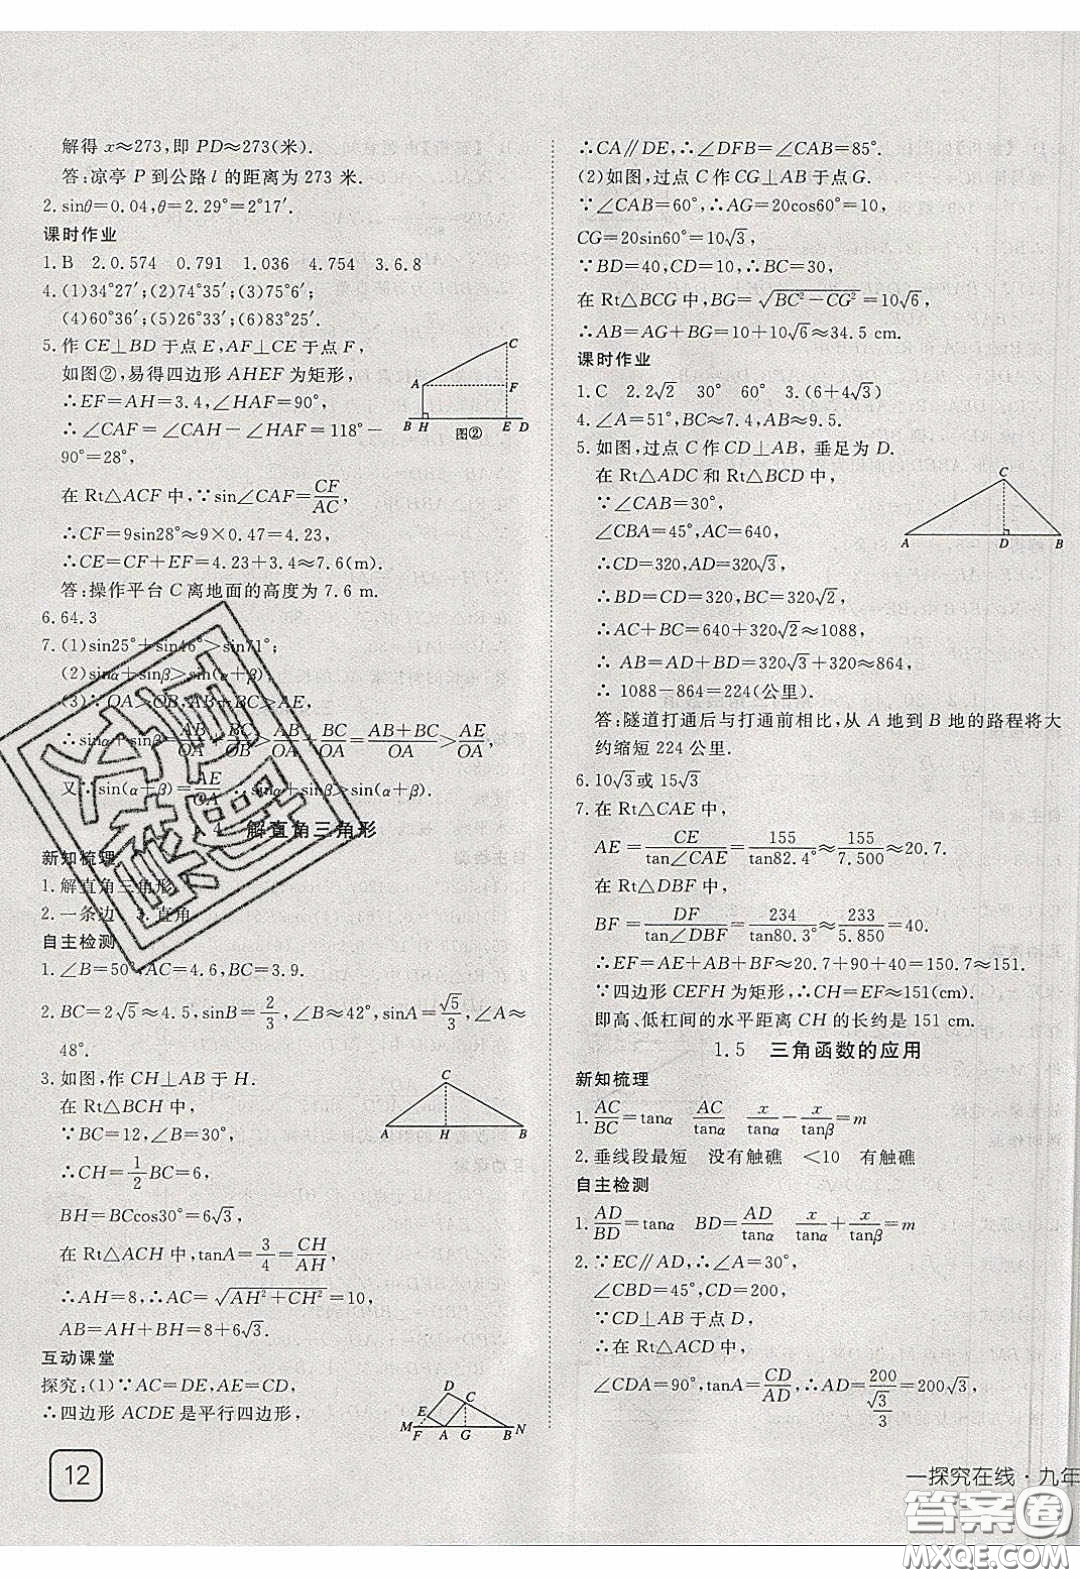 解得 x≈273,即 PD≈273(米).
答:凉亭 P 到公路 l 的距离为 273 米.
2.sinθ=0.04,θ=2.29°=2°17′.
课时作业
1.B 2.0.574 0.791 1.036 4.754 3.6.8
4.(1)34°27′;(2)74°35′;(3)75°6′;
(4)60°36′;(5)26°33′;(6)83°25′.
5.作 CE⊥BD 于点 E,AF⊥CE 于点 F,
如图②,易得四边形 AHEF 为矩形,
∴EF=AH=3.4,∠HAF=90°,
∴∠CAF=∠CAH-∠HAF=118°-
90°=28°,
在 Rt△ACF 中,∵sin∠CAF=CF/AC,
∴CF=9sin28°≈9×0.47=4.23,
∴CE=CF+EF=4.23+3.4≈7.6(m).
答:操作平台 C 离地面的高度为 7.6 m.
C
A
F
B H 图② E D
6.64.3
7.(1)sin25°+sin46°>sin71°;
(2)sinα+sinβ>sin(α+β);
(3)∵OA>OB,AB+BC>AE,
∴sinα+sinβ=AB/OA+BC/OB>AB/OA+BC/OA=AB+BC/OA>AE/OA,
又∵sin(α+β)=AE/OA,∴sinα+sinβ>sin(α+β).
解直角三角形
新知梳理
1.解直角三角形
2.一条边 3.直角
自主检测
1.∠B=50°,AC=4.6,BC=3.9.
2.BC=2√5≈4.5,sinB=2/3,∠B≈42°,sinA=√5/3,∠A≈
48°.
3.如图,作 CH⊥AB 于 H.
在 Rt△BCH 中,
∵BC=12,∠B=30°,
∴CH=1/2BC=6,
BH=BCcos30°=6√3,
在 Rt△ACH 中,tanA=3/4=CH/AH,
∴AH=8,∴AC=√(AH²+CH²)=10,
AB=AH+BH=8+6√3.
C
A H B
互动课堂
探究:(1)∵AC=DE,AE=CD,
∴四边形 ACDE 是平行四边形,
D
C
E
M F A G B N
12
∴CA∥DE,∴∠DFB=∠CAB=85°.
(2)如图,过点 C 作 CG⊥AB 于点 G.
∵∠CAB=60°,∴AG=20cos60°=10,
CG=20sin60°=10√3,
∵BD=40,CD=10,∴BC=30,
在 Rt△BCG 中,BG=√(BC²-CG²)=10√6,
∴AB=AG+BG=10+10√6≈34.5 cm.
课时作业
1.C 2.2√2 30° 60° 3.(6+4√3)
4.∠A=51°,BC≈7.4,AB≈9.5.
5.如图,过点 C 作 CD⊥AB, 垂足为 D.
在 Rt△ADC 和 Rt△BCD 中,
∵∠CAB=30°,
∠CBA=45°,AC=640,
∴CD=320,AD=320√3,
∴BD=CD=320,BC=320√2,
∴AC+BC=640+320√2≈1088,
∴ AB=AD+BD=320√3+320≈864,
∴ 1088-864=224(公里).
答:隧道打通后与打通前相比,从 A 地到 B 地的路程将大
约缩短 224 公里.
C
A D B
6.10√3或 15√3
7.在 Rt△CAE 中,
AE=CE/tan∠CAE=155/tan82.4°≈155/7.500≈20.7.
在 Rt△DBF 中,
BF=DF/tan∠DBF=234/tan80.3°≈234/5.850=40.
∴EF=AE+AB+BF≈20.7+90+40=150.7≈151.
∵四边形 CEFH 为矩形,∴CH=EF≈151(cm).
即高、低杠间的水平距离 CH 的长约是 151 cm.
1.5 三角函数的应用
新知梳理
1.AC/BC=tanα AC/tanα x/tanα-x/tanβ=m
2.垂线段最短 没有触礁 <10 有触礁
自主检测
1.AD/BD=tanα BD=AD/tanα x/tanα+x/tanβ=m
2.∵EC∥AD,∴∠A=30°,
∠CBD=45°,CD=200,
∵CD⊥AB 于点 D,
∴在 Rt△ACD 中,
∠CDA=90°,tanA=CD/AD,∴AD=200/(√3/3)=200√3,
一探究在线·九年
答案圈
MXQE.COM